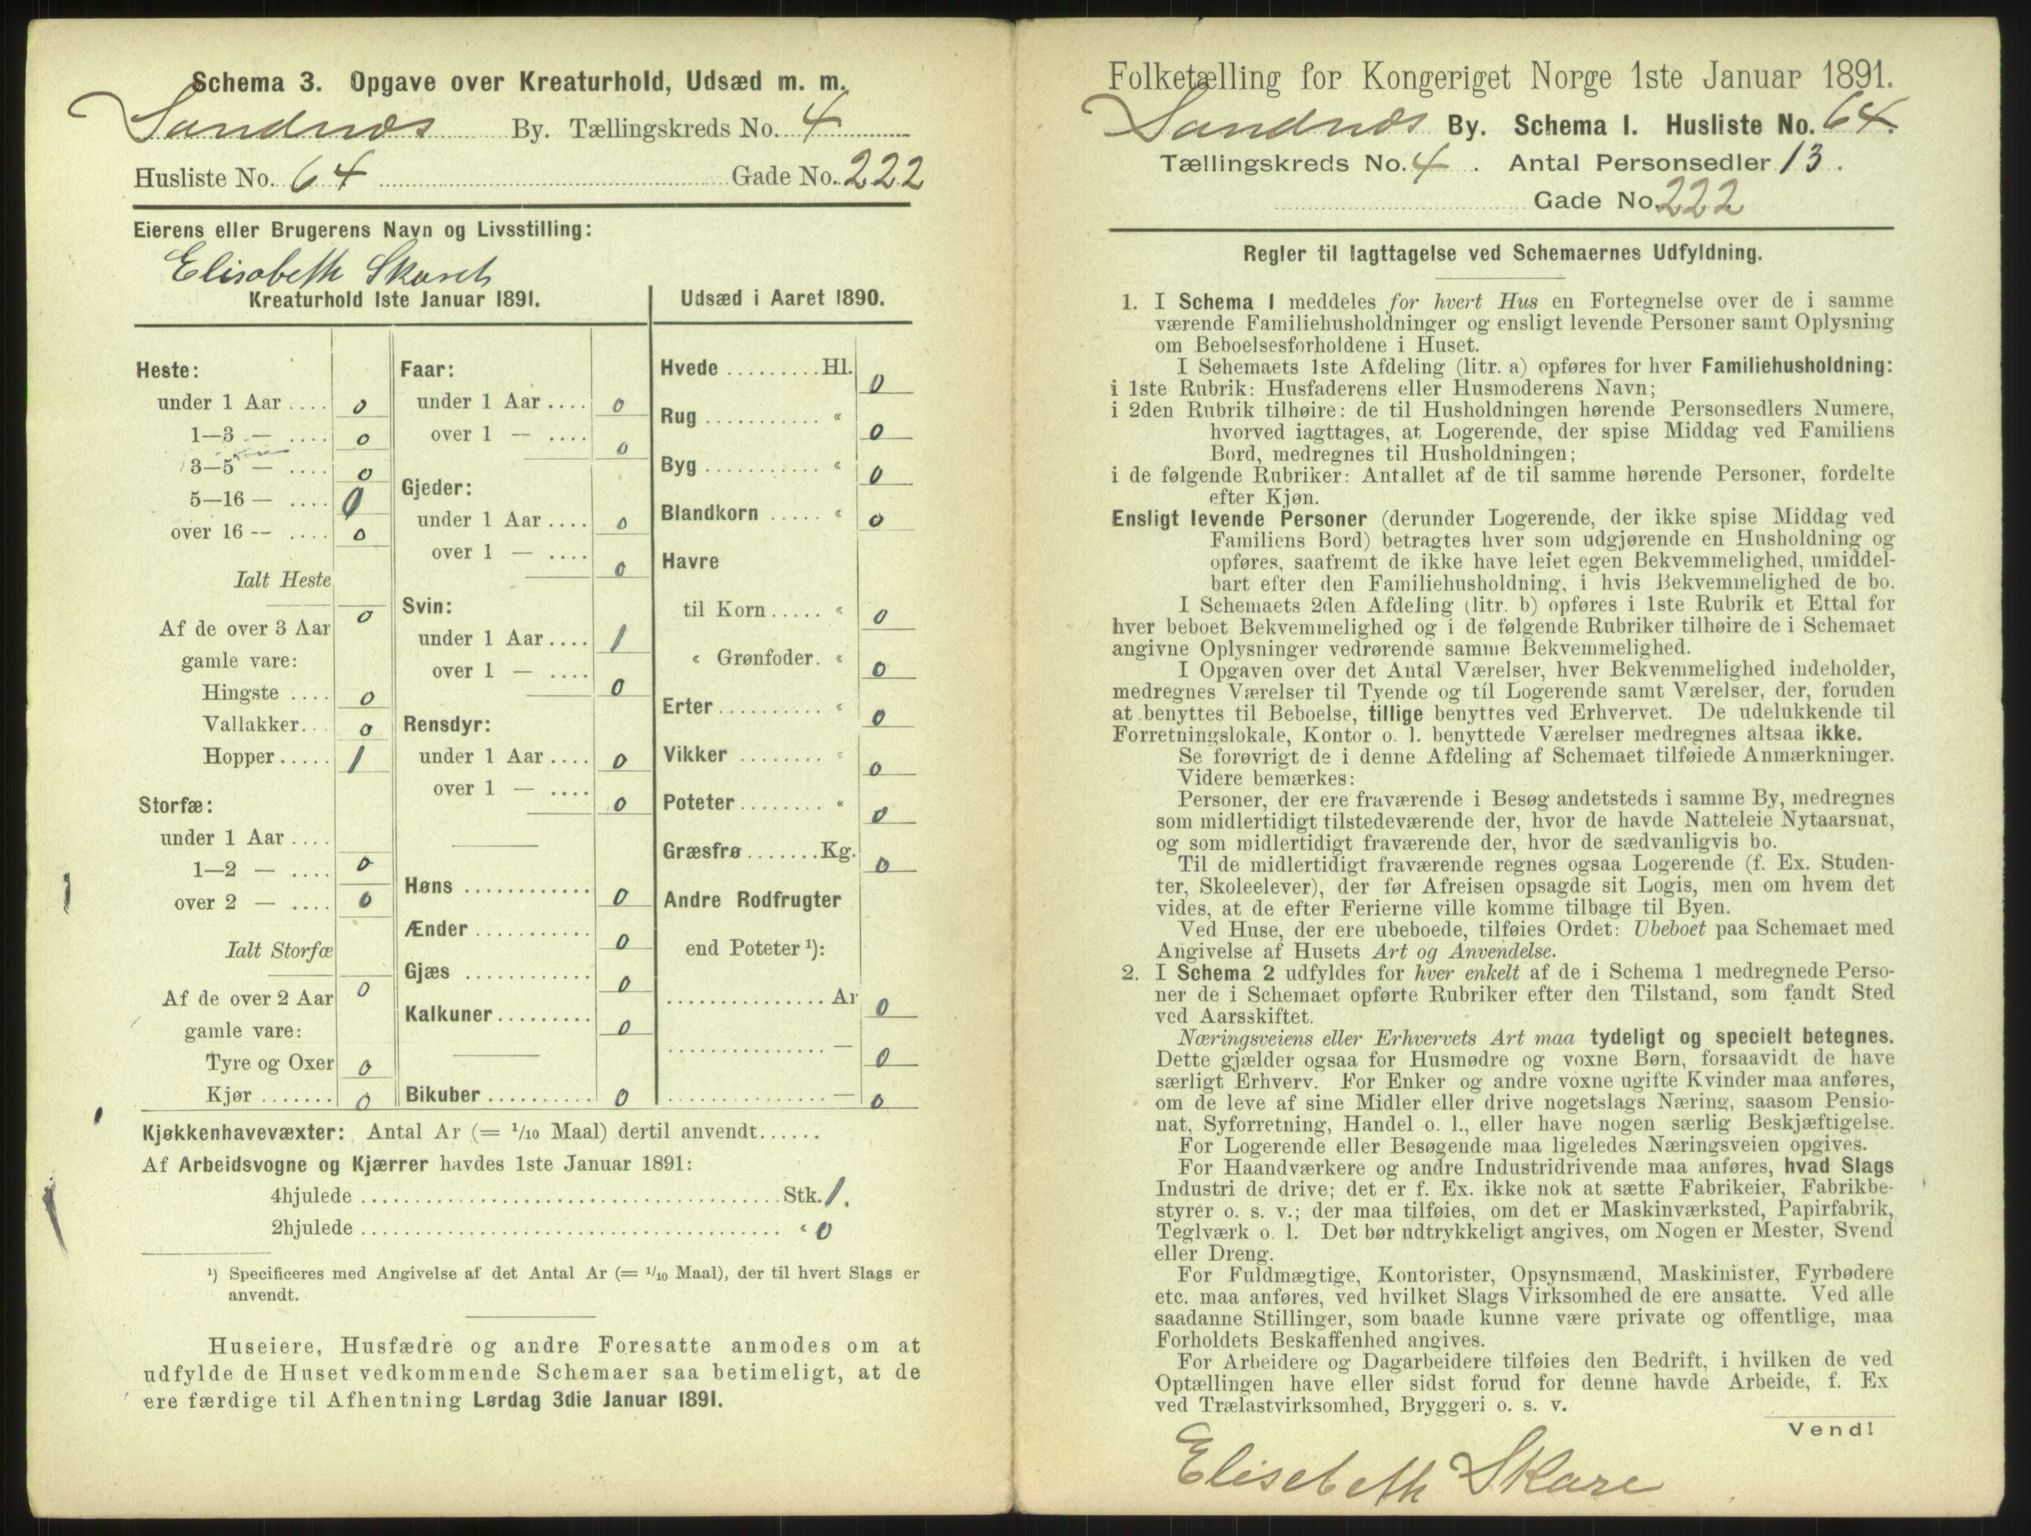 Schema 3. Opgave over Kreaturhold, Udsæd m. m.
Sandnæs By. Tællingskreds No. 4
Husliste No. 64 Gade No. 222
Eierens eller Brugerens Navn og Livsstilling:
Elisabeth Skaret
Kreaturhold 1ste Januar 1891.
Heste:
under 1 Aar .... 0
1—3 — .... 0
3—5 — .... 0
5—16 — .... 0
over 16 — .... 0
Ialt Heste 0
Af de over 3 Aar
gamle vare:
Hingste .... 0
Vallakker... 0
Hopper..... 1
Storfæ:
under 1 Aar ....
1—2 — .... 0
over 2 — .... 0
Ialt Storfæ 0
Af de over 2 Aar
gamle vare:
Tyre og Oxer 0
Kjør ....... 0
Faar:
under 1 Aar .... 0
over 1 — .... 0
Gjeder:
under 1 Aar .... 0
over 1 — .... 0
Svin:
under 1 Aar .... 1
over 1 — .... 0
Rensdyr:
under 1 Aar .... 0
over 1 — .... 0
Høns ............ 0
Ænder ........... 0
Gjæs ............ 0
Kalkuner......... 0
Bikuber .......... 0
Udsæd i Aaret 1890.
Hvede ......... Hl. 0
Rug ........... « 0
Byg ........... « 0
Blandkorn ..... « 0
Havre
til Korn ..... « 0
« Grønfoder. « 0
Erter .......... « 0
Vikker ........ « 0
Poteter ........ « 0
Græsfrø ....... Kg. 0
Andre Rodfrugter
end Poteter ¹):
............... Ar 0
............... — 0
............... — 0
Kjøkkenhavevæxter: Antal Ar (= 1/10 Maal) dertil anvendt......
Af Arbeidsvogne og Kjærrer havdes 1ste Januar 1891:
4hjulede ........................................ Stk. 1.
2hjulede ........................................ « 0
¹) Specificeres med Angivelse af det Antal Ar (= 1/10 Maal), der til hvert Slags er
anvendt.
Huseiere, Husfædre og andre Foresatte anmodes om at
udfylde de Huset vedkommende Schemaer saa betimeligt, at de
ere færdige til Afhentning Lørdag 3die Januar 1891.
Folketælling for Kongeriget Norge 1ste Januar 1891.
Sandnæs By. Schema I. Husliste No. 64.
Tællingskreds No. 4 . Antal Personsedler 13 .
Gade No. 222
Regler til Iagttagelse ved Schemaernes Udfyldning.
1. I Schema 1 meddeles for hvert Hus en Fortegnelse over de i samme
værende Familiehusholdninger og ensligt levende Personer samt Oplysning
om Beboelsesforholdene i Huset.
I Schemaets 1ste Afdeling (litr. a) opføres for hver Familiehusholdning:
i 1ste Rubrik: Husfaderens eller Husmoderens Navn;
i 2den Rubrik tilhøire: de til Husholdningen hørende Personsedlers Numere,
hvorved iagttages, at Logerende, der spise Middag ved Familiens
Bord, medregnes til Husholdningen;
i de følgende Rubriker: Antallet af de til samme hørende Personer, fordelte
efter Kjøn.
Ensligt levende Personer (derunder Logerende, der ikke spise Middag ved
Familiens Bord) betragtes hver som udgjørende en Husholdning og
opføres, saafremt de ikke have leiet egen Bekvemmelighed, umiddel-
bart efter den Familiehusholdning, i hvis Bekvemmelighed de bo.
I Schemaets 2den Afdeling (litr. b) opføres i 1ste Rubrik et Ettal for
hver beboet Bekvemmelighed og i de følgende Rubriker tilhøire de i Schemaet
angivne Oplysninger vedrørende samme Bekvemmelighed.
I Opgaven over det Antal Værelser, hver Bekvemmelighed indeholder,
medregnes Værelser til Tyende og til Logerende samt Værelser, der, foruden
at benyttes til Beboelse, tillige benyttes ved Erhvervet. De udelukkende til
Forretningslokale, Kontor o. l. benyttede Værelser medregnes altsaa ikke.
Se forøvrigt de i denne Afdeling af Schemaet tilføiede Anmærkninger.
Videre bemærkes:
Personer, der ere fraværende i Besøg andetsteds i samme By, medregnes
som midlertidigt tilstedeværende der, hvor de havde Natteleie Nytaarsnat,
og som midlertidigt fraværende der, hvor de sædvanligvis bo.
Til de midlertidigt fraværende regnes ogsaa Logerende (f. Ex. Studen-
ter, Skoleelever), der før Afreisen opsagde sit Logis, men om hvem det
vides, at de efter Ferierne ville komme tilbage til Byen.
Ved Huse, der ere ubeboede, tilføies Ordet: Ubeboet paa Schemaet med
Angivelse af Husets Art og Anvendelse.
2. I Schema 2 udfyldes for hver enkelt af de i Schema 1 medregnede Perso-
ner de i Schemaet opførte Rubriker efter den Tilstand, som fandt Sted
ved Aarsskiftet.
Næringsveiens eller Erhvervets Art maa tydeligt og specielt betegnes.
Dette gjælder ogsaa for Husmødre og voxne Børn, forsaavidt de have
særligt Erhverv. For Enker og andre voxne ugifte Kvinder maa anføres,
om de leve af sine Midler eller drive nogetslags Næring, saasom Pensio-
nat, Syforretning, Handel o. l., eller have nogen særlig Beskjæftigelse.
For Logerende eller Besøgende maa ligeledes Næringsveien opgives.
For Haandværkere og andre Industridrivende maa anføres, hvad Slags
Industri de drive; det er f. Ex. ikke nok at sætte Fabrikeier, Fabrikbe-
styrer o. s. v.; der maa tilføies, om det er Maskinværksted, Papirfabrik,
Teglværk o. l. Det bør udtrykkeligt angives, om Nogen er Mester, Svend
eller Dreng.
For Fuldmægtige, Kontorister, Opsynsmænd, Maskinister, Fyrbødere
etc. maa anføres, ved hvilket Slags Virksomhed de ere ansatte. Ved alle
saadanne Stillinger, som baade kunne være private og offentlige, maa
Forholdets Beskaffenhed angives.
For Arbeidere og Dagarbeidere tilføies den Bedrift, i hvilken de ved
Optællingen have eller sidst forud for denne havde Arbeide, f. Ex
ved Trælastvirksomhed, Bryggeri o. s. v.
Vend!
Elisebeth Skare